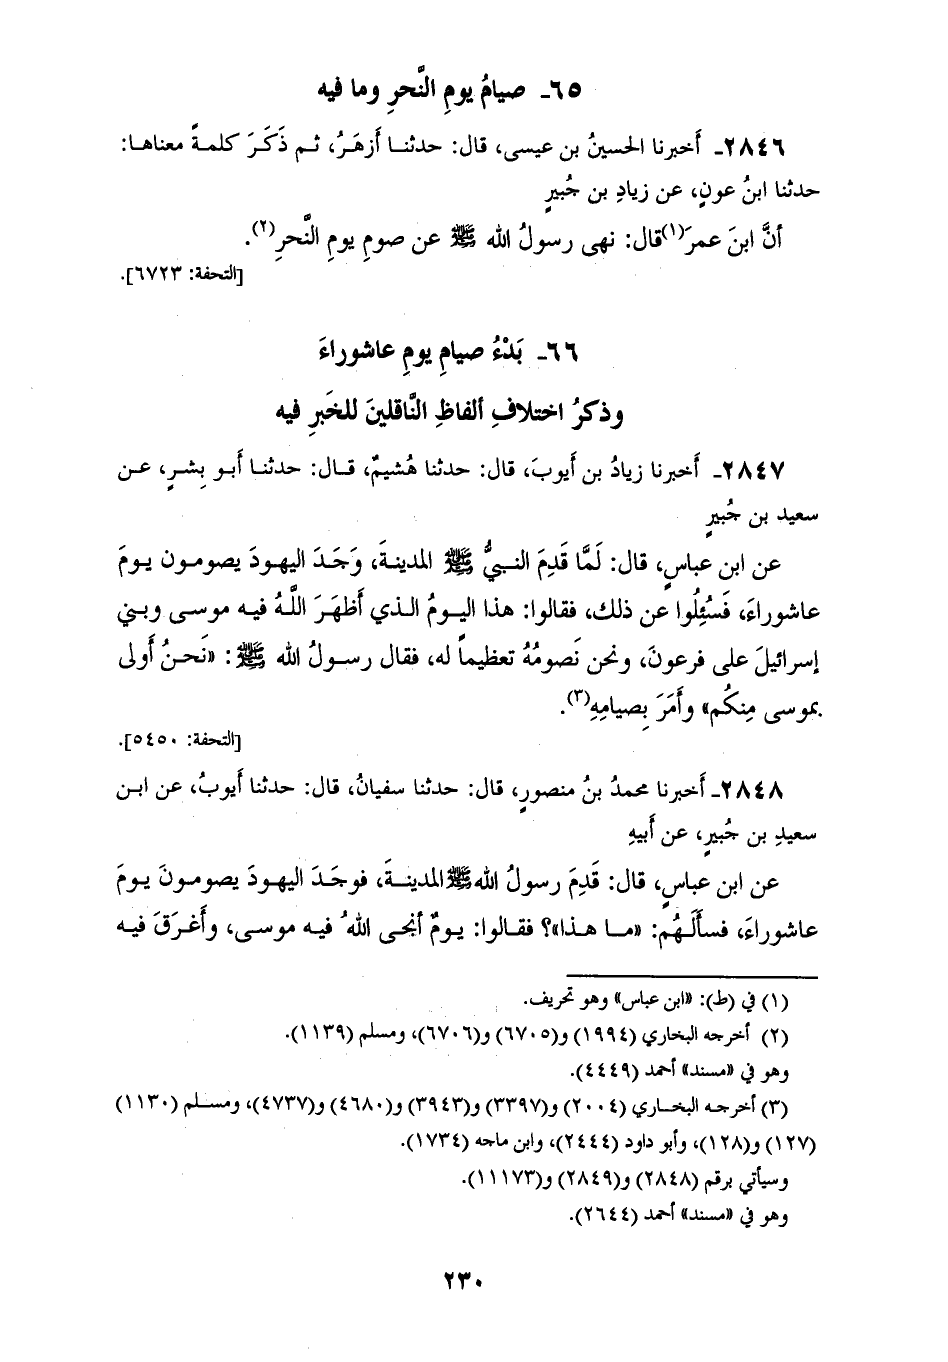 ٦٥ـ صيامُ يومِ النَّحرِ وما فيه
٢٨٤٦ـ أخبرنا الحسينُ بن عيسى، قال: حدثنـا أزهَرُ، ثـم ذَكَرَ كلمـةً معناهـا:
حدثنا ابنُ عونٍ، عن زيادِ بن جُبيرٍ
أنَّ ابنَ عمرَ(١) قال: نهى رسولُ الله ﷺ عن صومِ يومِ النَّحرِ(٢).
[التحفة: ٦٧٢٣].
٦٦ـ بَدْءُ صيامِ يومِ عاشوراءَ
وذكرُ اختلافِ ألفاظِ النَّاقلينَ للخَبرِ فيه
٢٨٤٧ـ أخبرنا زيادُ بن أيوبَ، قال: حدثنا هُشيمٌ، قـال: حدثنـا أبـو بِشـرٍ، عـن
سعيد بن جُبيرٍ
عن ابن عباسٍ، قال: لَمَّا قَدِمَ النـبيُّ ﷺ المدينـةَ، وَجَدَ اليهودَ يصومـون يـومَ
عاشوراءَ، فَسُئِلُوا عن ذلك، فقالوا: هذا اليـومُ الـذي أظهَرَ اللَّهُ فيـه موسـى وبـني
إسرائيلَ على فرعونَ، ونحن نَصومُهُ تعظيماً له، فقال رسـولُ الله ﷺ: «نَحـنُ أَولى
بموسى مِنكُم» وأَمَرَ بِصيامِهِ(٣).
[التحفة: ٥٤٥٠].
٢٨٤٨ـ أخبرنا محمدُ بنُ منصورٍ، قال: حدثنا سفيانُ، قال: حدثنا أيوبُ، عن ابـن
سعيدِ بن جُبيرٍ، عن أَبيهِ
عن ابن عباسٍ، قال: قَدِمَ رسولُ الله ﷺ المدينـةَ، فوجَـدَ اليهودَ يصومـونَ يـومَ
عاشوراءَ، فسأَلَـهُم: «مـا هـذا»؟ فقـالوا: يـومٌ أنجـى اللهُ فيـه موسـى، وأَغـرَقَ فيـه
(١) في (ط): «ابن عباس» وهو تحريف.
(٢) أخرجه البخاري (١٩٩٤) و(٦٧٠٥) و(٦٧٠٦)، ومسلم (١١٣٩).
وهو في «مسند» أحمد (٤٤٤٩).
(٣) أخرجـه البخـاري (٢٠٠٤) و(٣٣٩٧) و(٣٩٤٣) و(٤٦٨٠) و(٤٧٣٧)، ومسـلم (١١٣٠)
(١٢٧) و(١٢٨)، وأبو داود (٢٤٤٤)، وابن ماجه (١٧٣٤).
وسيأتي برقم (٢٨٤٨) و(٢٨٤٩) و(١١١٧٣).
وهو في «مسند» أحمد (٢٦٤٤).
٢٣٠